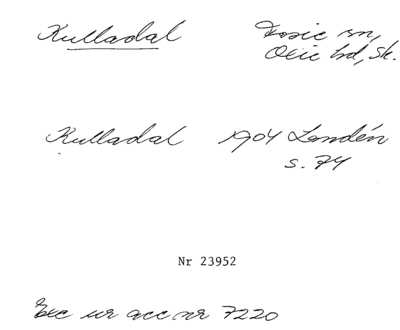 Kulladal Fosie sn,
Oxie hd, Sk.
Kulladal 1904 Landén
s. 74
Nr 23952
Exc ur acc nr 7220